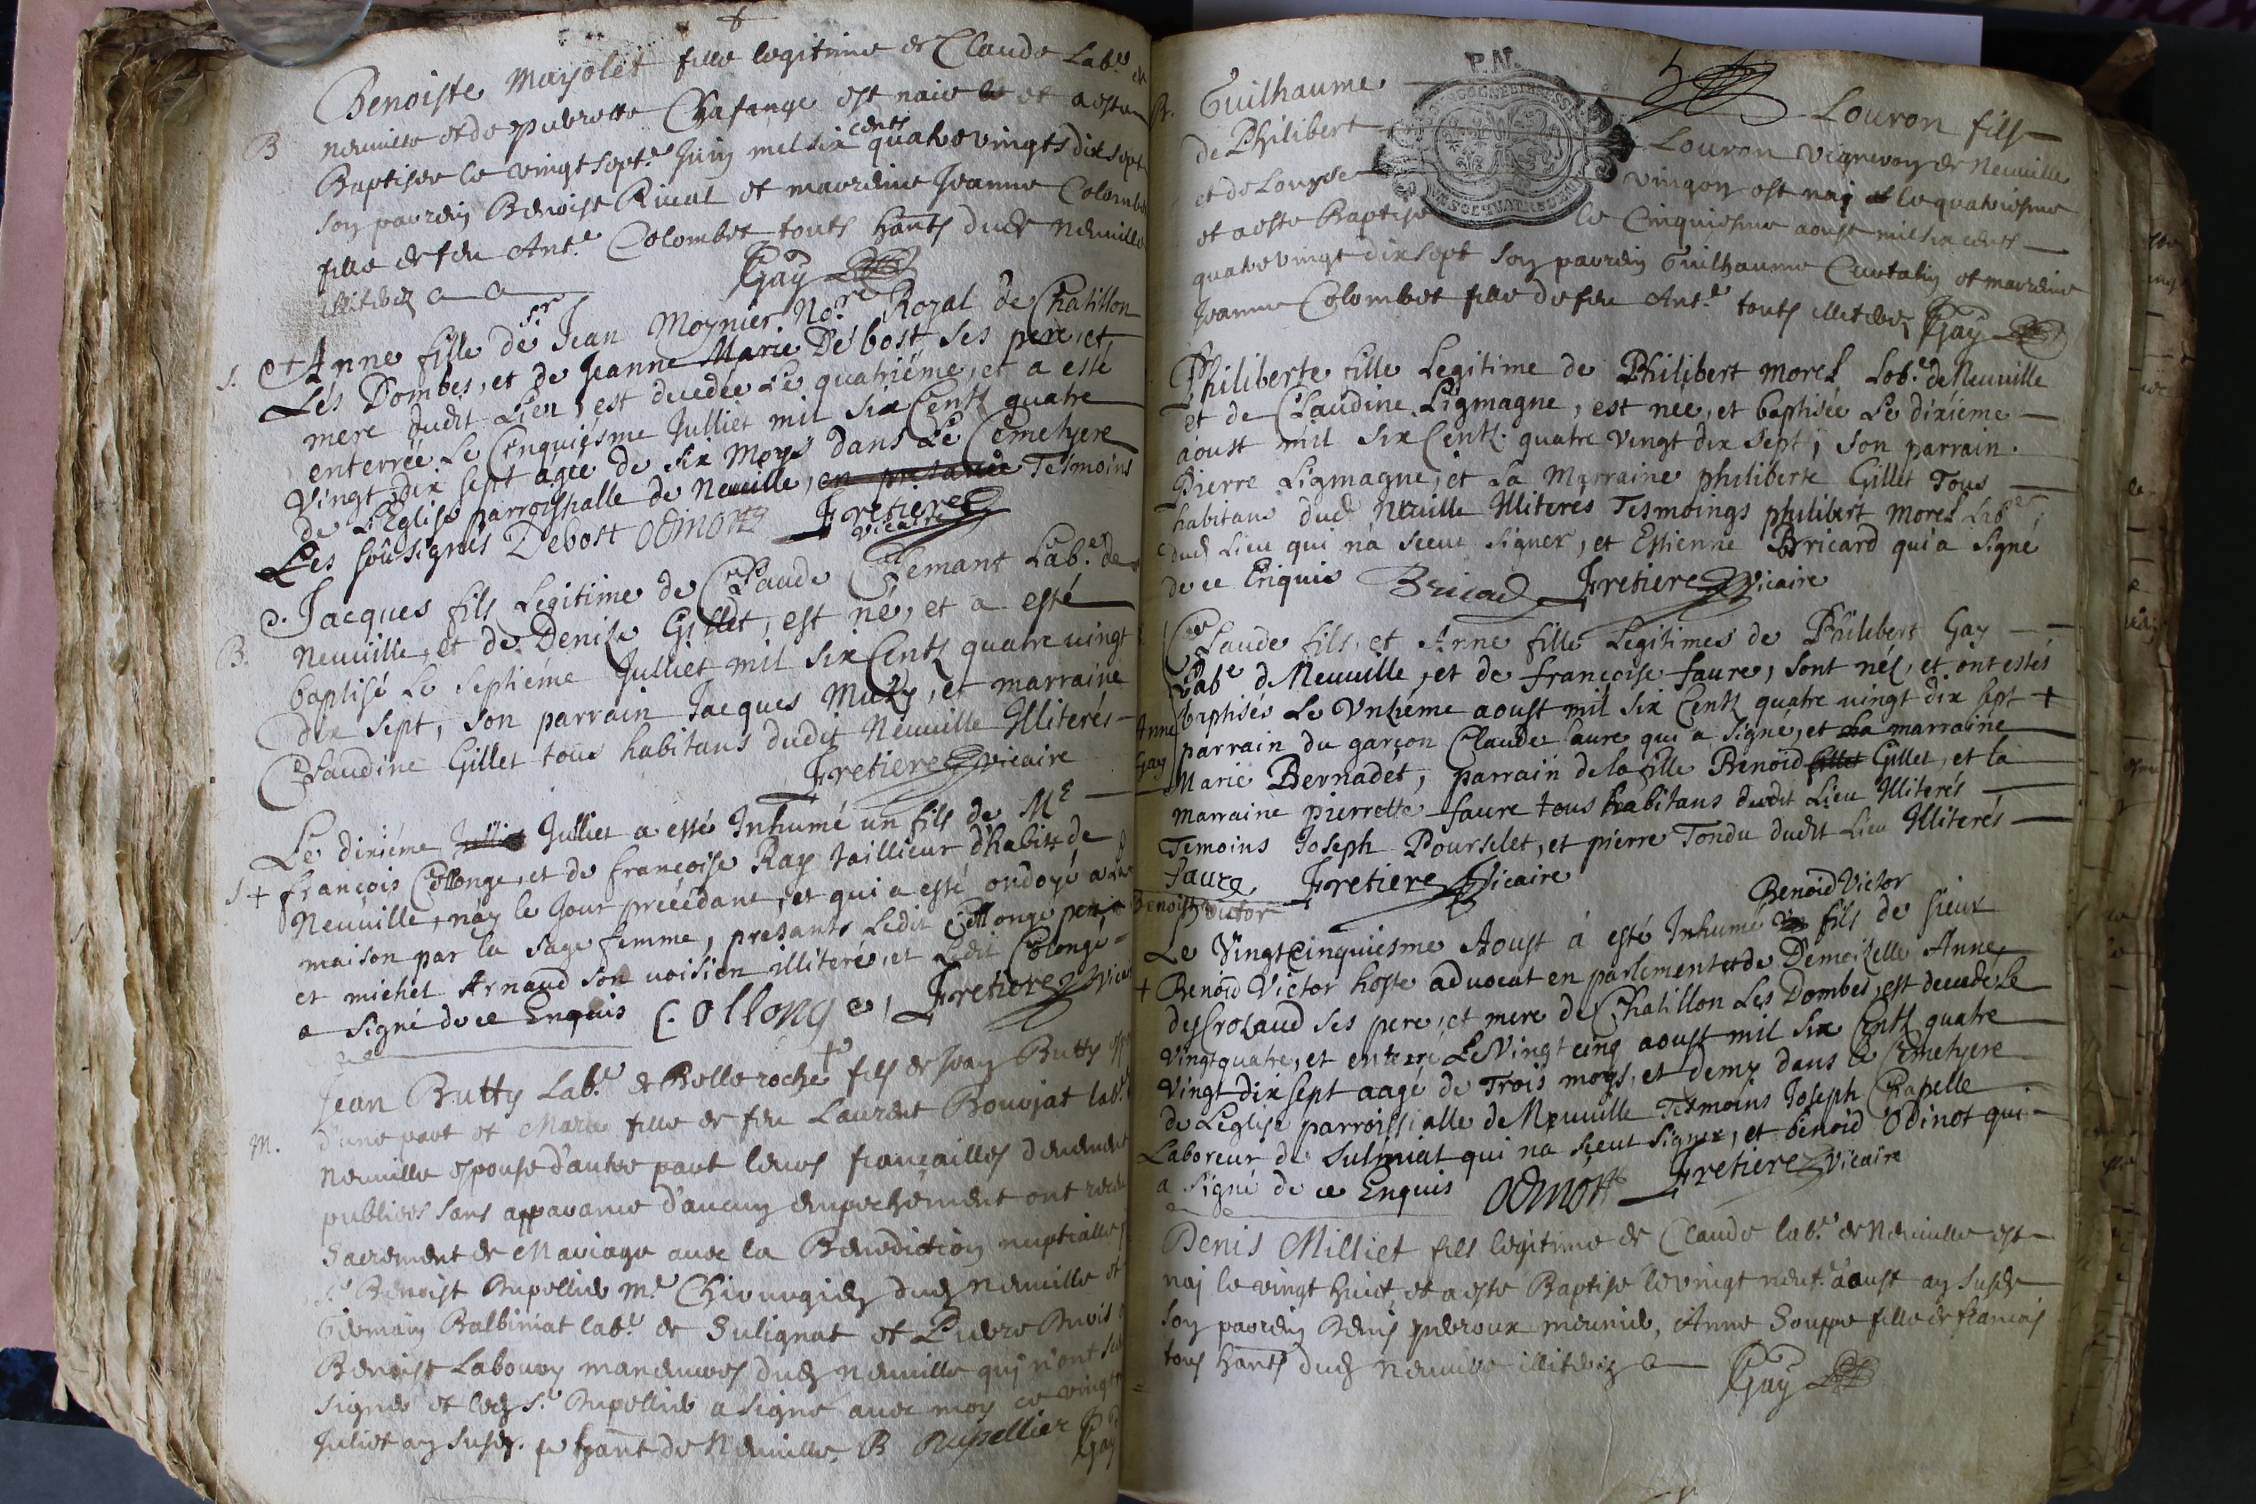 Benoiste Mayolet fille legitime de Claude Lab.r de
B
neuville et de pierrette Chafange est naie et a esté
Baptisée le vingt sept.e Juin mil six cents quatrevingts dix sept
son parrein Benoist Rival et marreine Jeanne Colombet
fille de feu Ant.e Colombet touts hants dud neuville
illiterez
Gay
S.
+ Anne fille de sr Jean Moynier No.re Royal de Chatillon
Les Dombes, et de Jeanne Marie Debost ses pere, et
mere dudit Lieu, est decedée Le quatriéme, et a esté
enterrée Le Cinquiésme Julliet mil six Cents quatre
Vingt dix sept agée de six Moys dans Le Cemetyere
de L'Eglise parroisshalle de Neuville, en presance Tesmoins
Les soûsignés Debost Odinot Fretiere
Vicaire
Jacques fils Legitime de Claude Clemant Lab.r de
B.
Neuville, et de Denise Gillet, est né, et a esté
baptisé Le septiéme Julliet mil six Cents quatre vingt
dix sept, son parrain Jacques Muzy, et marraine
Claudine Gillet tous habitans dudit Neuville Illiterés
Fretiere Vicaire
Le dixiéme Julliet Julliet a esté Inhumé un fils de M.e
S + françois Collonge, et de françoise Ray taillieur d'habits de
Neuville, nay le Jour précédant, et qui a esté ondoyé a La
maison par la sage femme, presants Ledit Collonge pere
et michel Arnaud son voision illiteré, et Ledit Colonge
a signé de ce Enquis C. Ollonge, Fretiere Vicaire
Jean Butty Lab.r de Belleroche + fils de Jean Butty
M.
d'une part et Marie fille de feu Laurent Bouvjat lab.r
Neuville espouse d'autre part leurs fiançailles deuement
publiées sans apparance d'aucun empechement ont receu
Sacrement de Mariage avec la Benediction nuptialle
s.r Benoist Rupellier m.e Chirurgien dud neuville et
Germain Balbiniat lab.r de Sulignat et Pierre Buis
Benoist Laboury manœuvres dud neuville qui n'ont sceu
signer et led s.r Rupellier a signé avec moy ce vingt
Juliet an susd. hant de Neuville. B Rupellier Gay
P.N.
B.
Guilhaume Louron fils
de Philibert Louron Vigneron de Neuville
et de Louyse Vingon est nay le quatriesme
et a esté Baptisé le Cinquiesme aoust mil six cents
quatre vingt dix sept son parrein Guilhaume Curtaliy et marreine
Jeanne Colombet fille de feu Ant.e touts illiterez Gay
Philiberte fille Legitime de Philibert morel Lab.r de Neuville
et de Claudine Ligmagne, est née, et baptisée Le dixiéme
aoust mil six Cents quatre Vingt dix sept, son parrain
Pierre Ligmagne, et La Marraine philiberte Gillet Tous
habitans dud Neuville Illiterés Tesmoings philibert morel Lab.r
dud Lieu qui n'a sceu signer, et Estienne Bricard qui a signé
de ce Enquis Bricad Fretiere Vicaire
Claude fils, et Anne fille Legitimes de Philibert Gay
Lab.r d Neuville, et de françoise faure, sont nés, et ont estés
baptisés Le Unziéme aoust mil six Cents quatre vingt dix sept +
Anne Gay
parrain du garçon Claude faure qui a signé, et La marraine
Marie Bernadet, parrain de la fille Benoid Gillet Gillet, et la
marraine pierrette faure tous habitans dudit Lieu Illiterés
Temoins Joseph Pourselet, et pierre Tondu dudit Lieu Illiterés
Faure Fretiere Vicaire
Benoist Victor
Benoid Victor
Le Vingtcinquiésme Aoust á esté Inhumé Un fils de sieur
+ Benoid Victor hoste advocat en parlement et de Demoizelle Anne
des Crozaud ses pere, et mere de Chatillon Les Dombes, est decedé Le
Vingtquatre, et enterré Le Vingt cinq aoust mil six Cents quatre
Vingt dix sept aagé de Trois moys, et demy dans Le Cemetyere
de L'eglise parroissialle de Neuville Tesmoins Joseph Chapelle
Laboreur de Sulmiat qui na sceut signer, et benoid Odinot qui
a signé de ce Enquis Odinot Fretiere Vicaire
Denis Milliet fils legitime de Claude lab.r de Neuville est
nai le vingt huict, et a esté Baptisé le vingt neuf.e aoust an susd
son parrein Denis perroux meunier, Anne Souppe fille de francois
tous hants dud neuville illiterez Gay